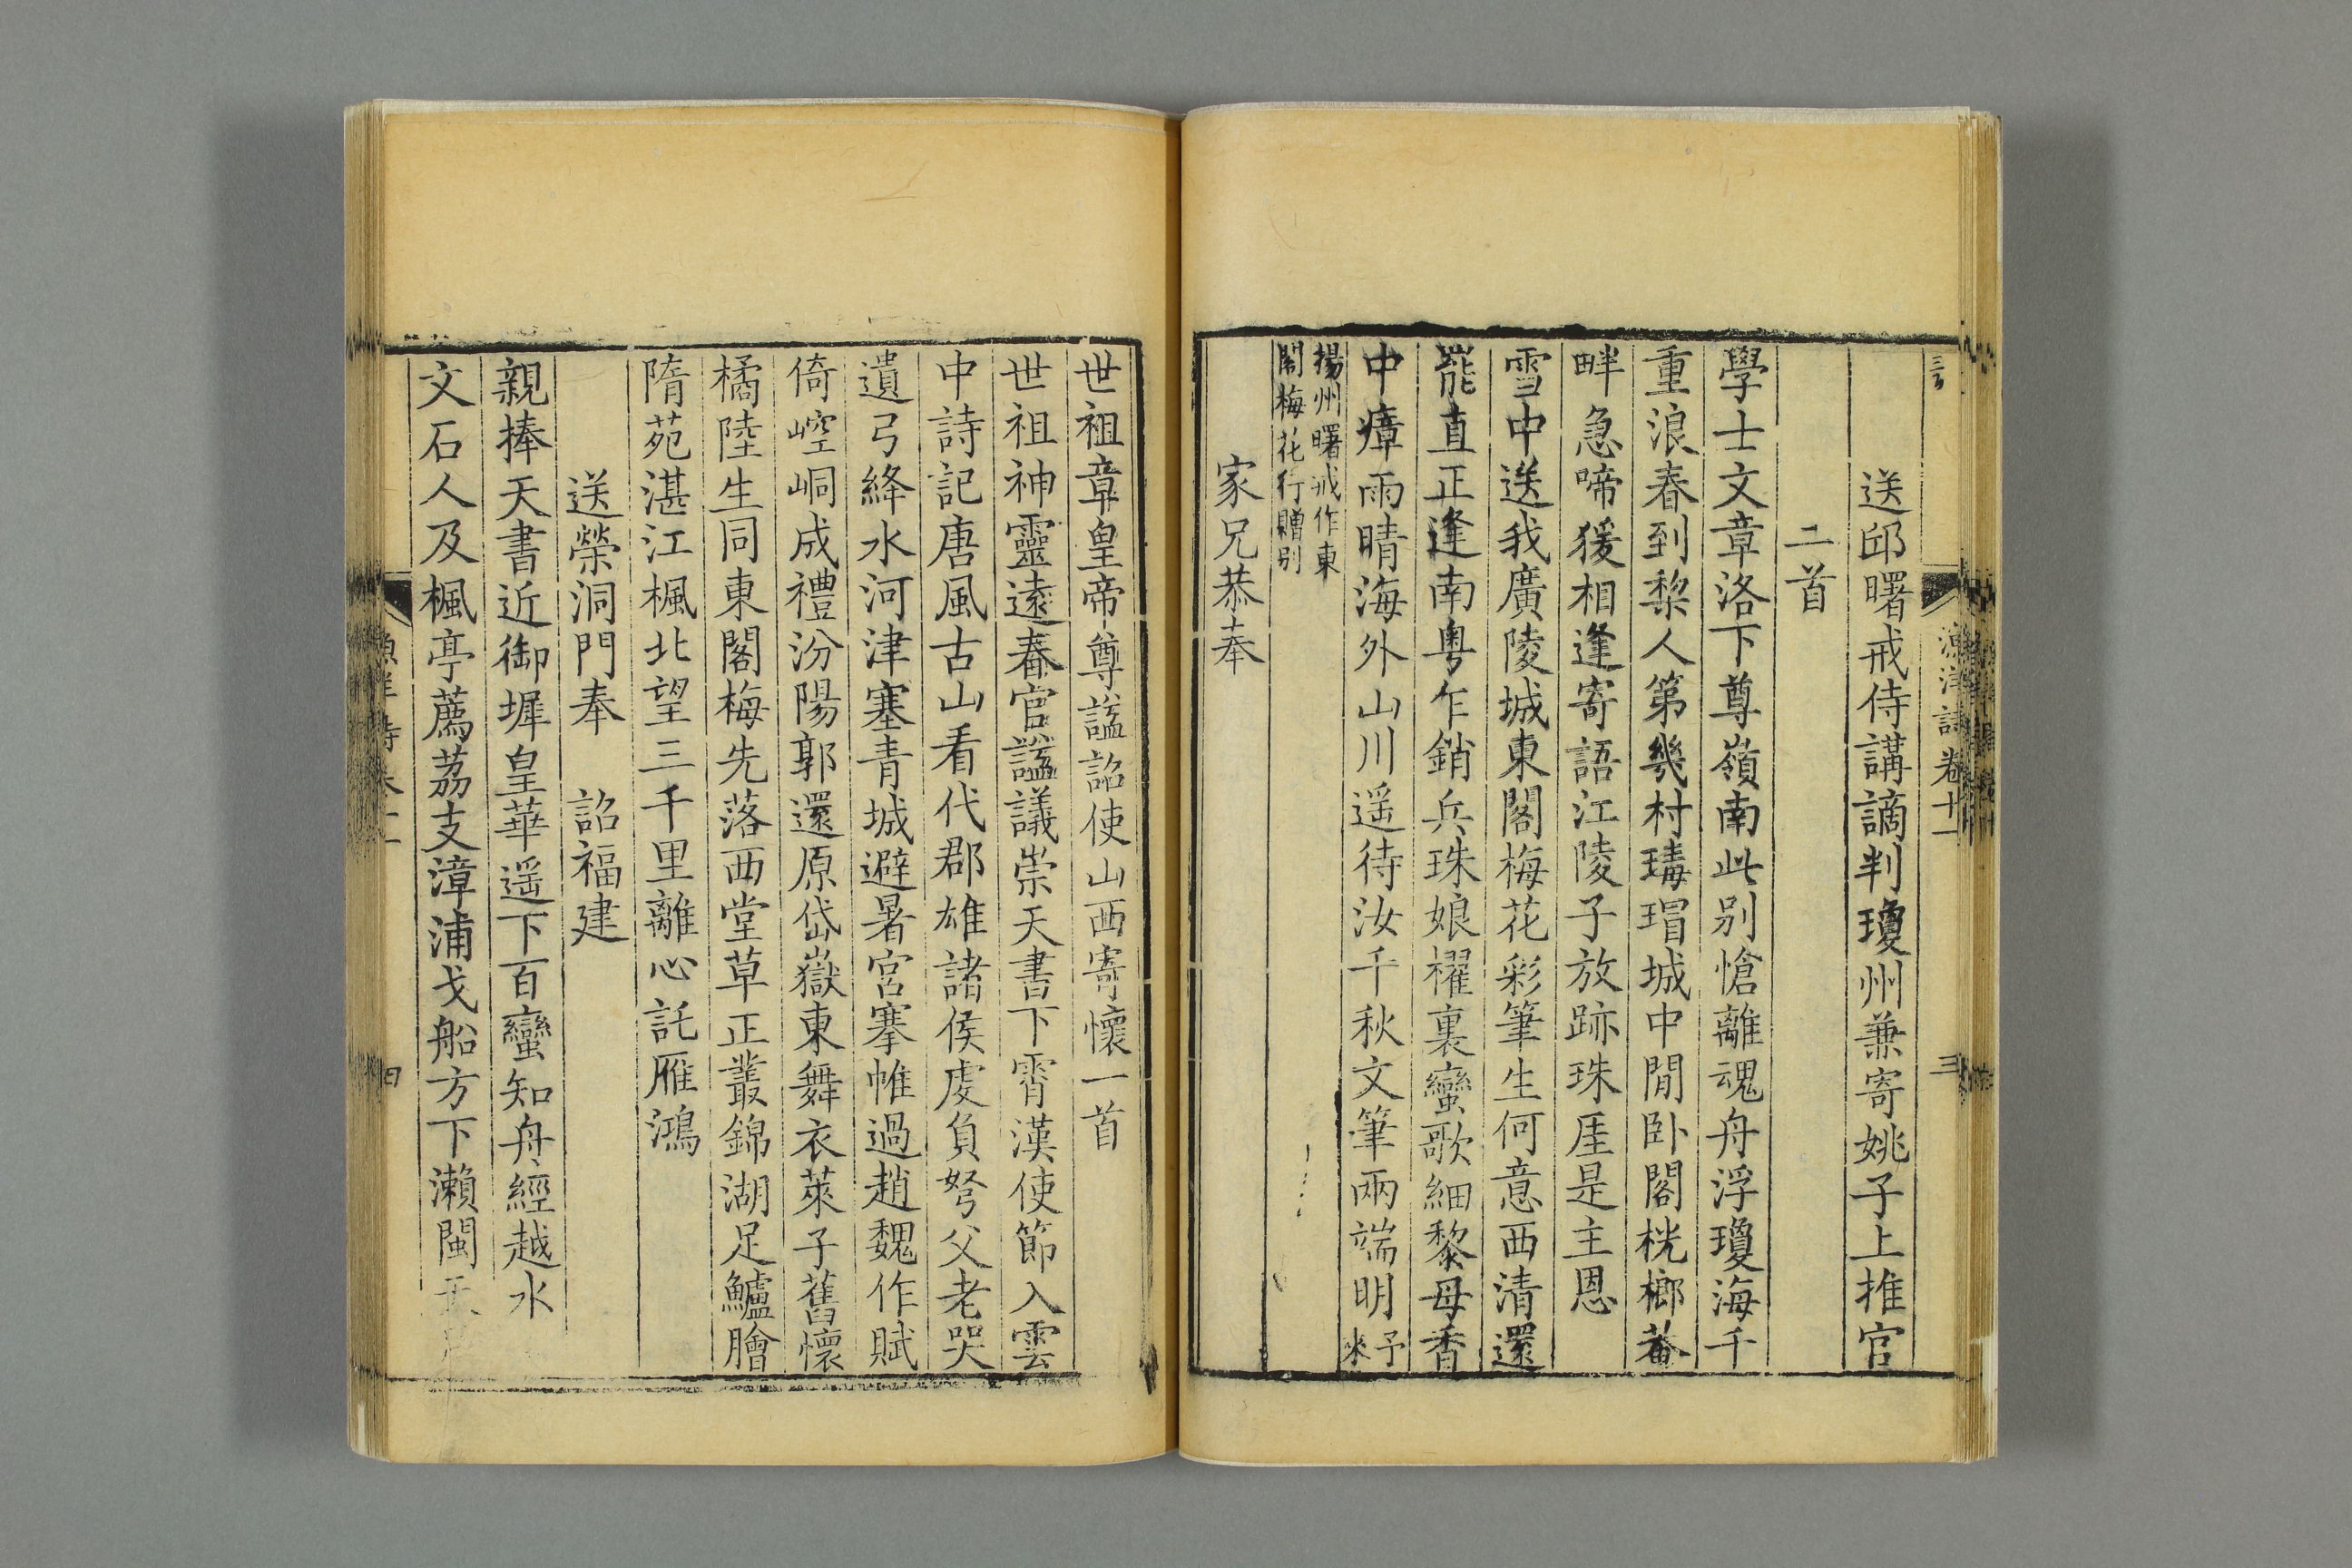 漁洋詩卷十一
三
送邱曙戒侍講謫判瓊州兼寄姚子上推官
二首
學士文章洛下尊嶺南此别愴離魂舟浮瓊海千
重浪春到黎人第幾村瑇瑁城中閒卧閣桄榔菴
畔急啼猨相逢寄語江陵子放跡珠厓是主恩
雪中送我廣陵城東閣梅花彩筆生何意西清還
罷直正逢南粤乍銷兵珠娘櫂裏蠻歌細黎母香
中瘴雨晴海外山川遥待汝千秋文筆兩端明予來
揚州曙戒作東
閣梅花行贈别
家兄恭奉
世祖章皇帝尊諡詔使山西寄懷一首
世祖神靈遠春官諡議崇天書下霄漢使節入雲
中詩記唐風古山看代郡雄諸侯虔負弩父老哭
遺弓絳水河津塞青城避暑宮搴帷過趙魏作賦
倚崆峒成禮汾陽郭還原岱嶽東舞衣萊子舊懷
橘陸生同東閣梅先落西堂草正叢錦湖足鱸膾
隋苑湛江楓北望三千里離心託雁鴻
送榮洞門奉 詔福建
親捧天書近御墀皇華遥下百蠻知舟經越水
文石人及楓亭薦荔支漳浦戈船方下瀨閩天
四